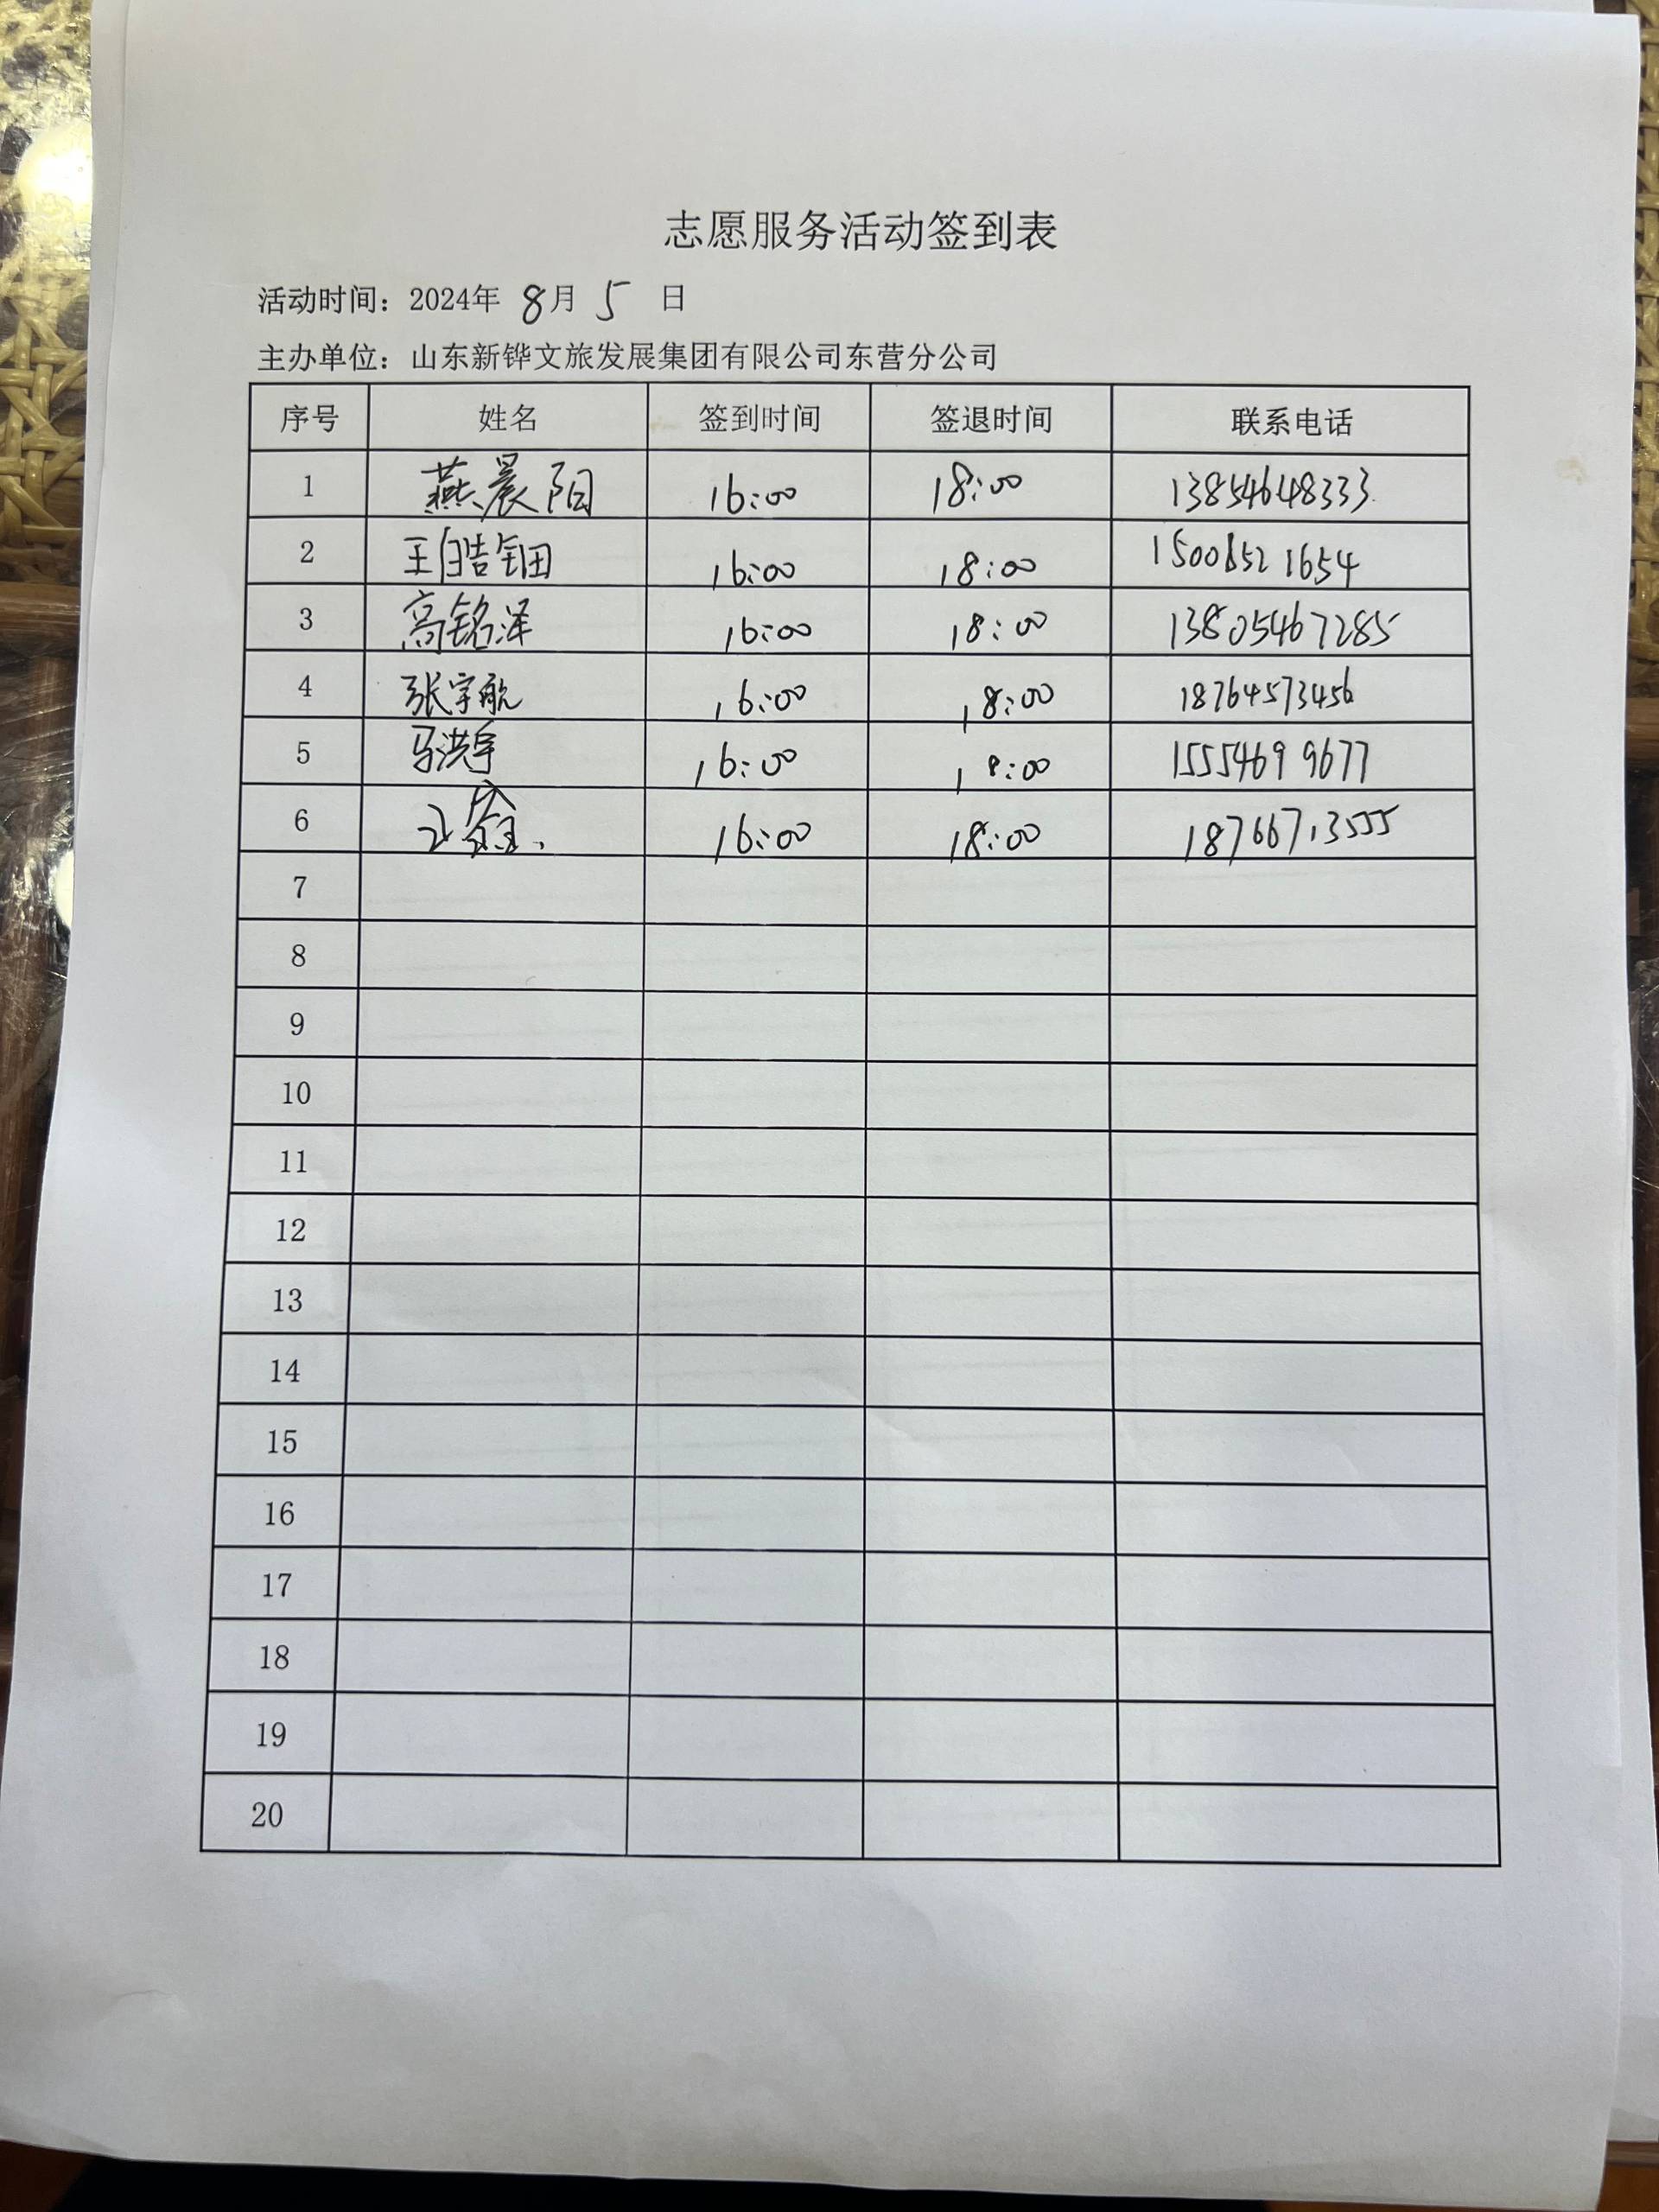 志愿服务活动签到表
活动时间：2024年 8月 5 日
主办单位：山东新铧文旅发展集团有限公司东营分公司
序号 姓名 签到时间 签退时间 联系电话
1 燕晨阳 16:00 18:00 13854648333
2 王皓钿 16:00 18:00 15006521654
3 高铭泽 16:00 18:00 13805467285
4 张宇航 16:00 18:00 18764573456
5 马洪宇 16:00 18:00 15554699677
6 16:00 18:00 18766713555
7
8
9
10
11
12
13
14
15
16
17
18
19
20